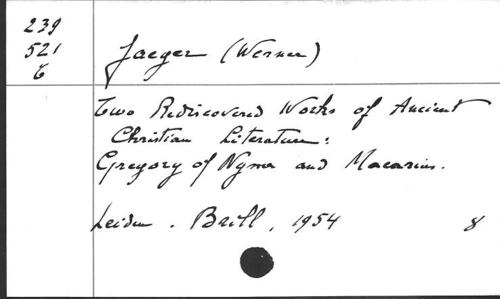 239
521
C
Jaeger (Werner)
Two Rediscovered Works of Ancient
Christian Literature:
Gregory of Nyssa and Macarius.
Leiden. Brill, 1954 8